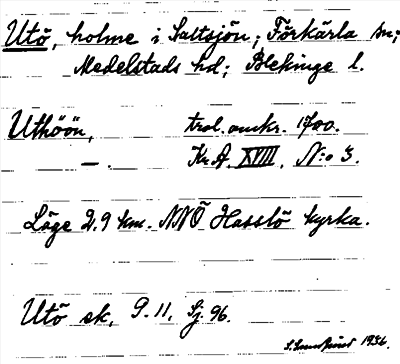 Utö, holme i Saltsjön; Förkärla sn;
Medelstads hd; Blekinge l.
Uthöön, trol. omkr. 1700.
— . Kr.A. XVIII. N:o 3.
Läge 2.9 km. NNÖ Hasslö kyrka.
Utö ek, 9.11. Sj. 96.
1936.